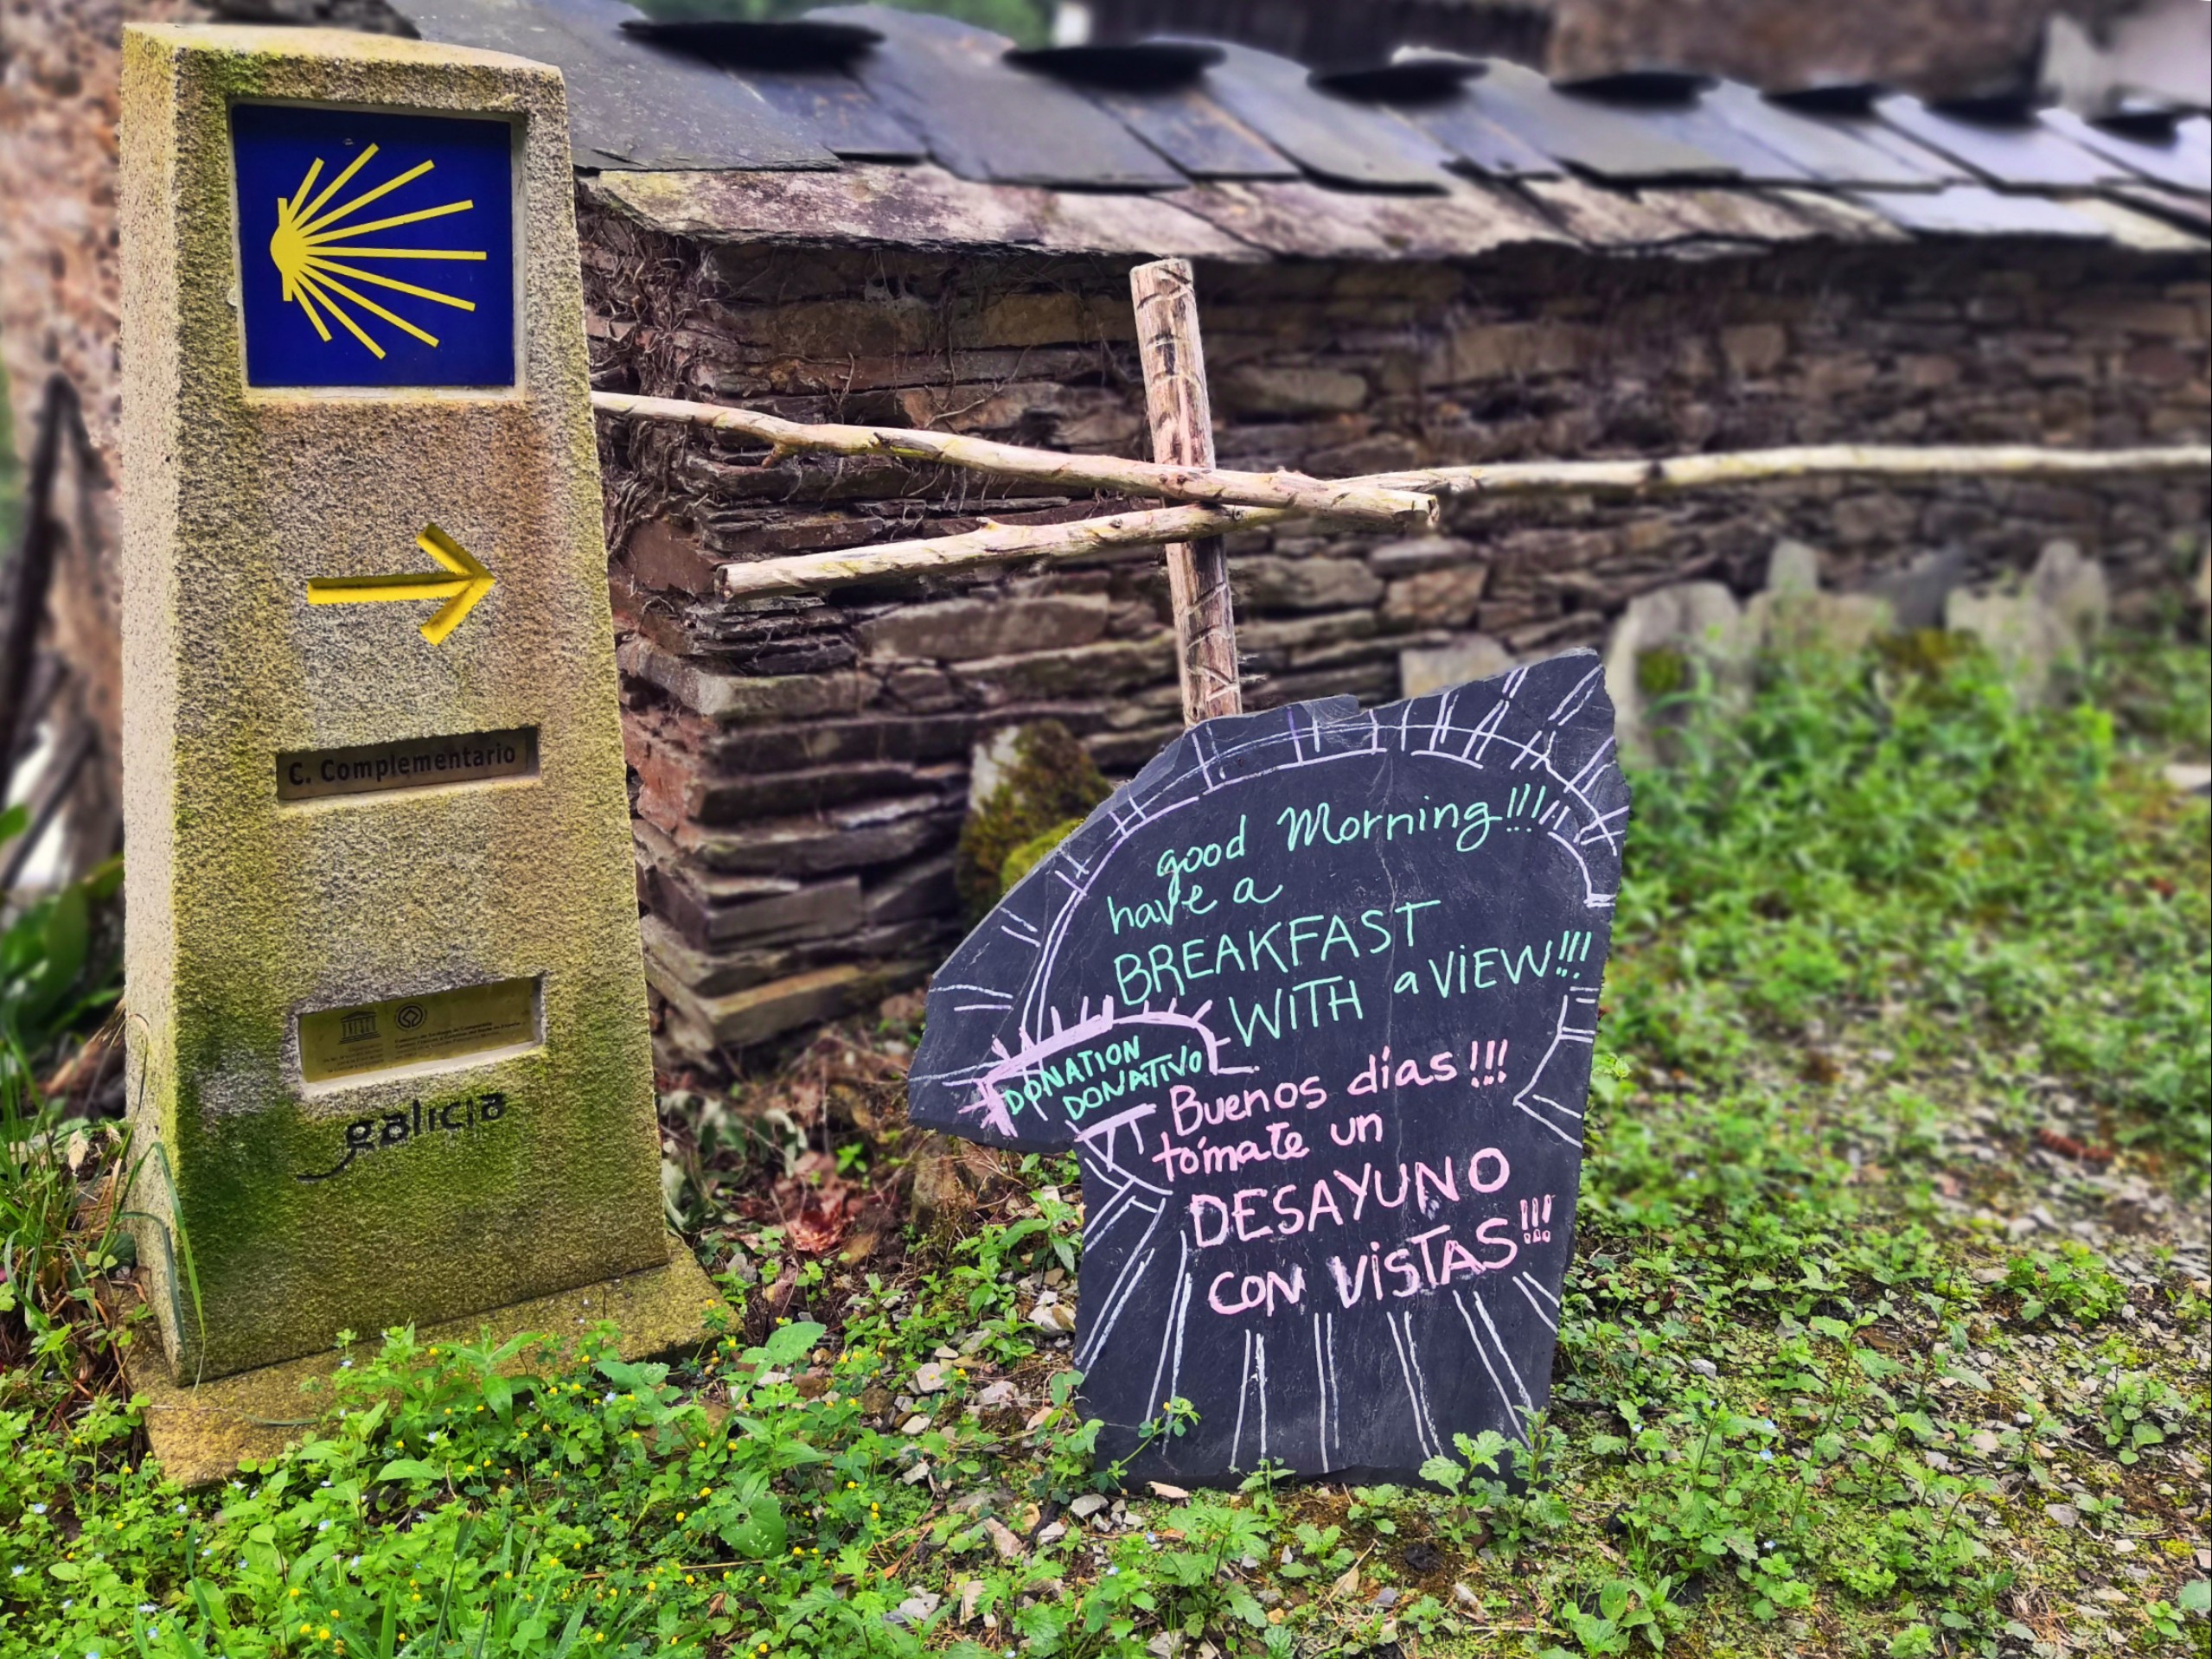 C. Complementario
galicia
good Morning!!!
have a
BREAKFAST
WITH a ViEW!!!
DONATION
DONATIVO
Buenos días!!!
tómate un
DESAYUNO
CON ViSTAS!!!